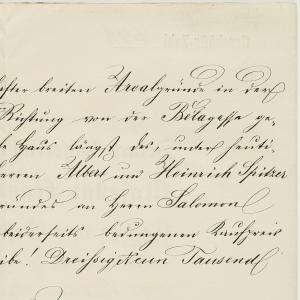 after breiten Arealgründe in der
Richtung von der Bélagasse ge,
te Haus längst des, unter heuti-
Herren Albert und Heinrich Spitzer
rundes an Herrn Salomon
beiderseits bedungenen Kaufpreis
ibe! Dreissigneun Tausend